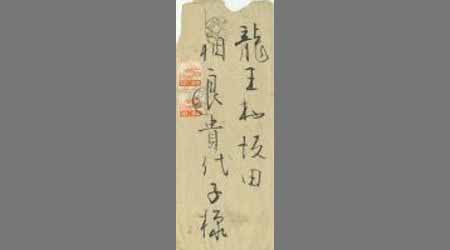 龍王村坂田
良貴代子様